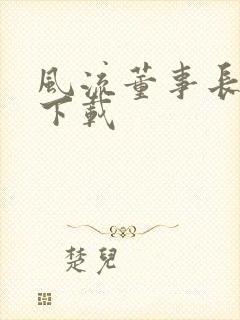 風流董事長
下載
楚兒